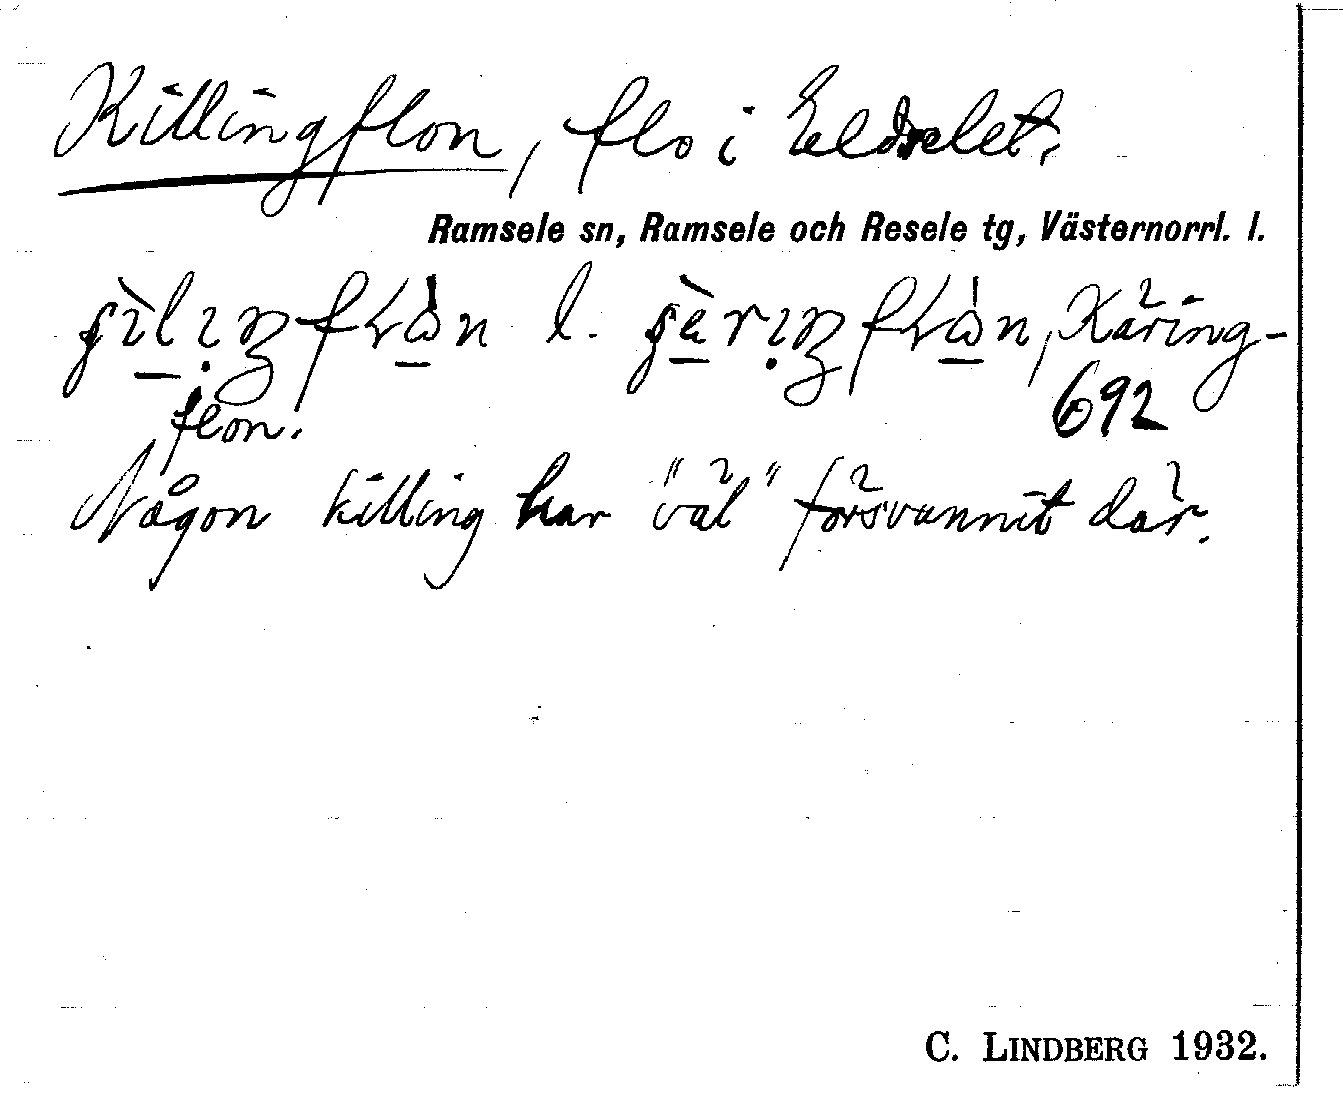 Killingflon, flo i Eldselet.
Ramsele sn, Ramsele och Resele tg, Västernorrl. l.
l. Käring-
flon. 692
Någon killing har "väl" försvunnit där.
C. LINDBERG 1932.